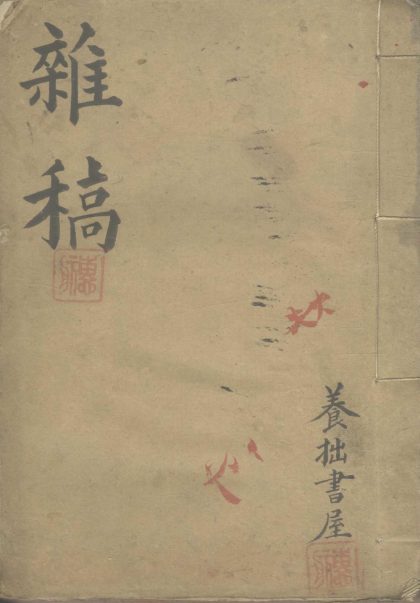 雜稿
養拙書屋